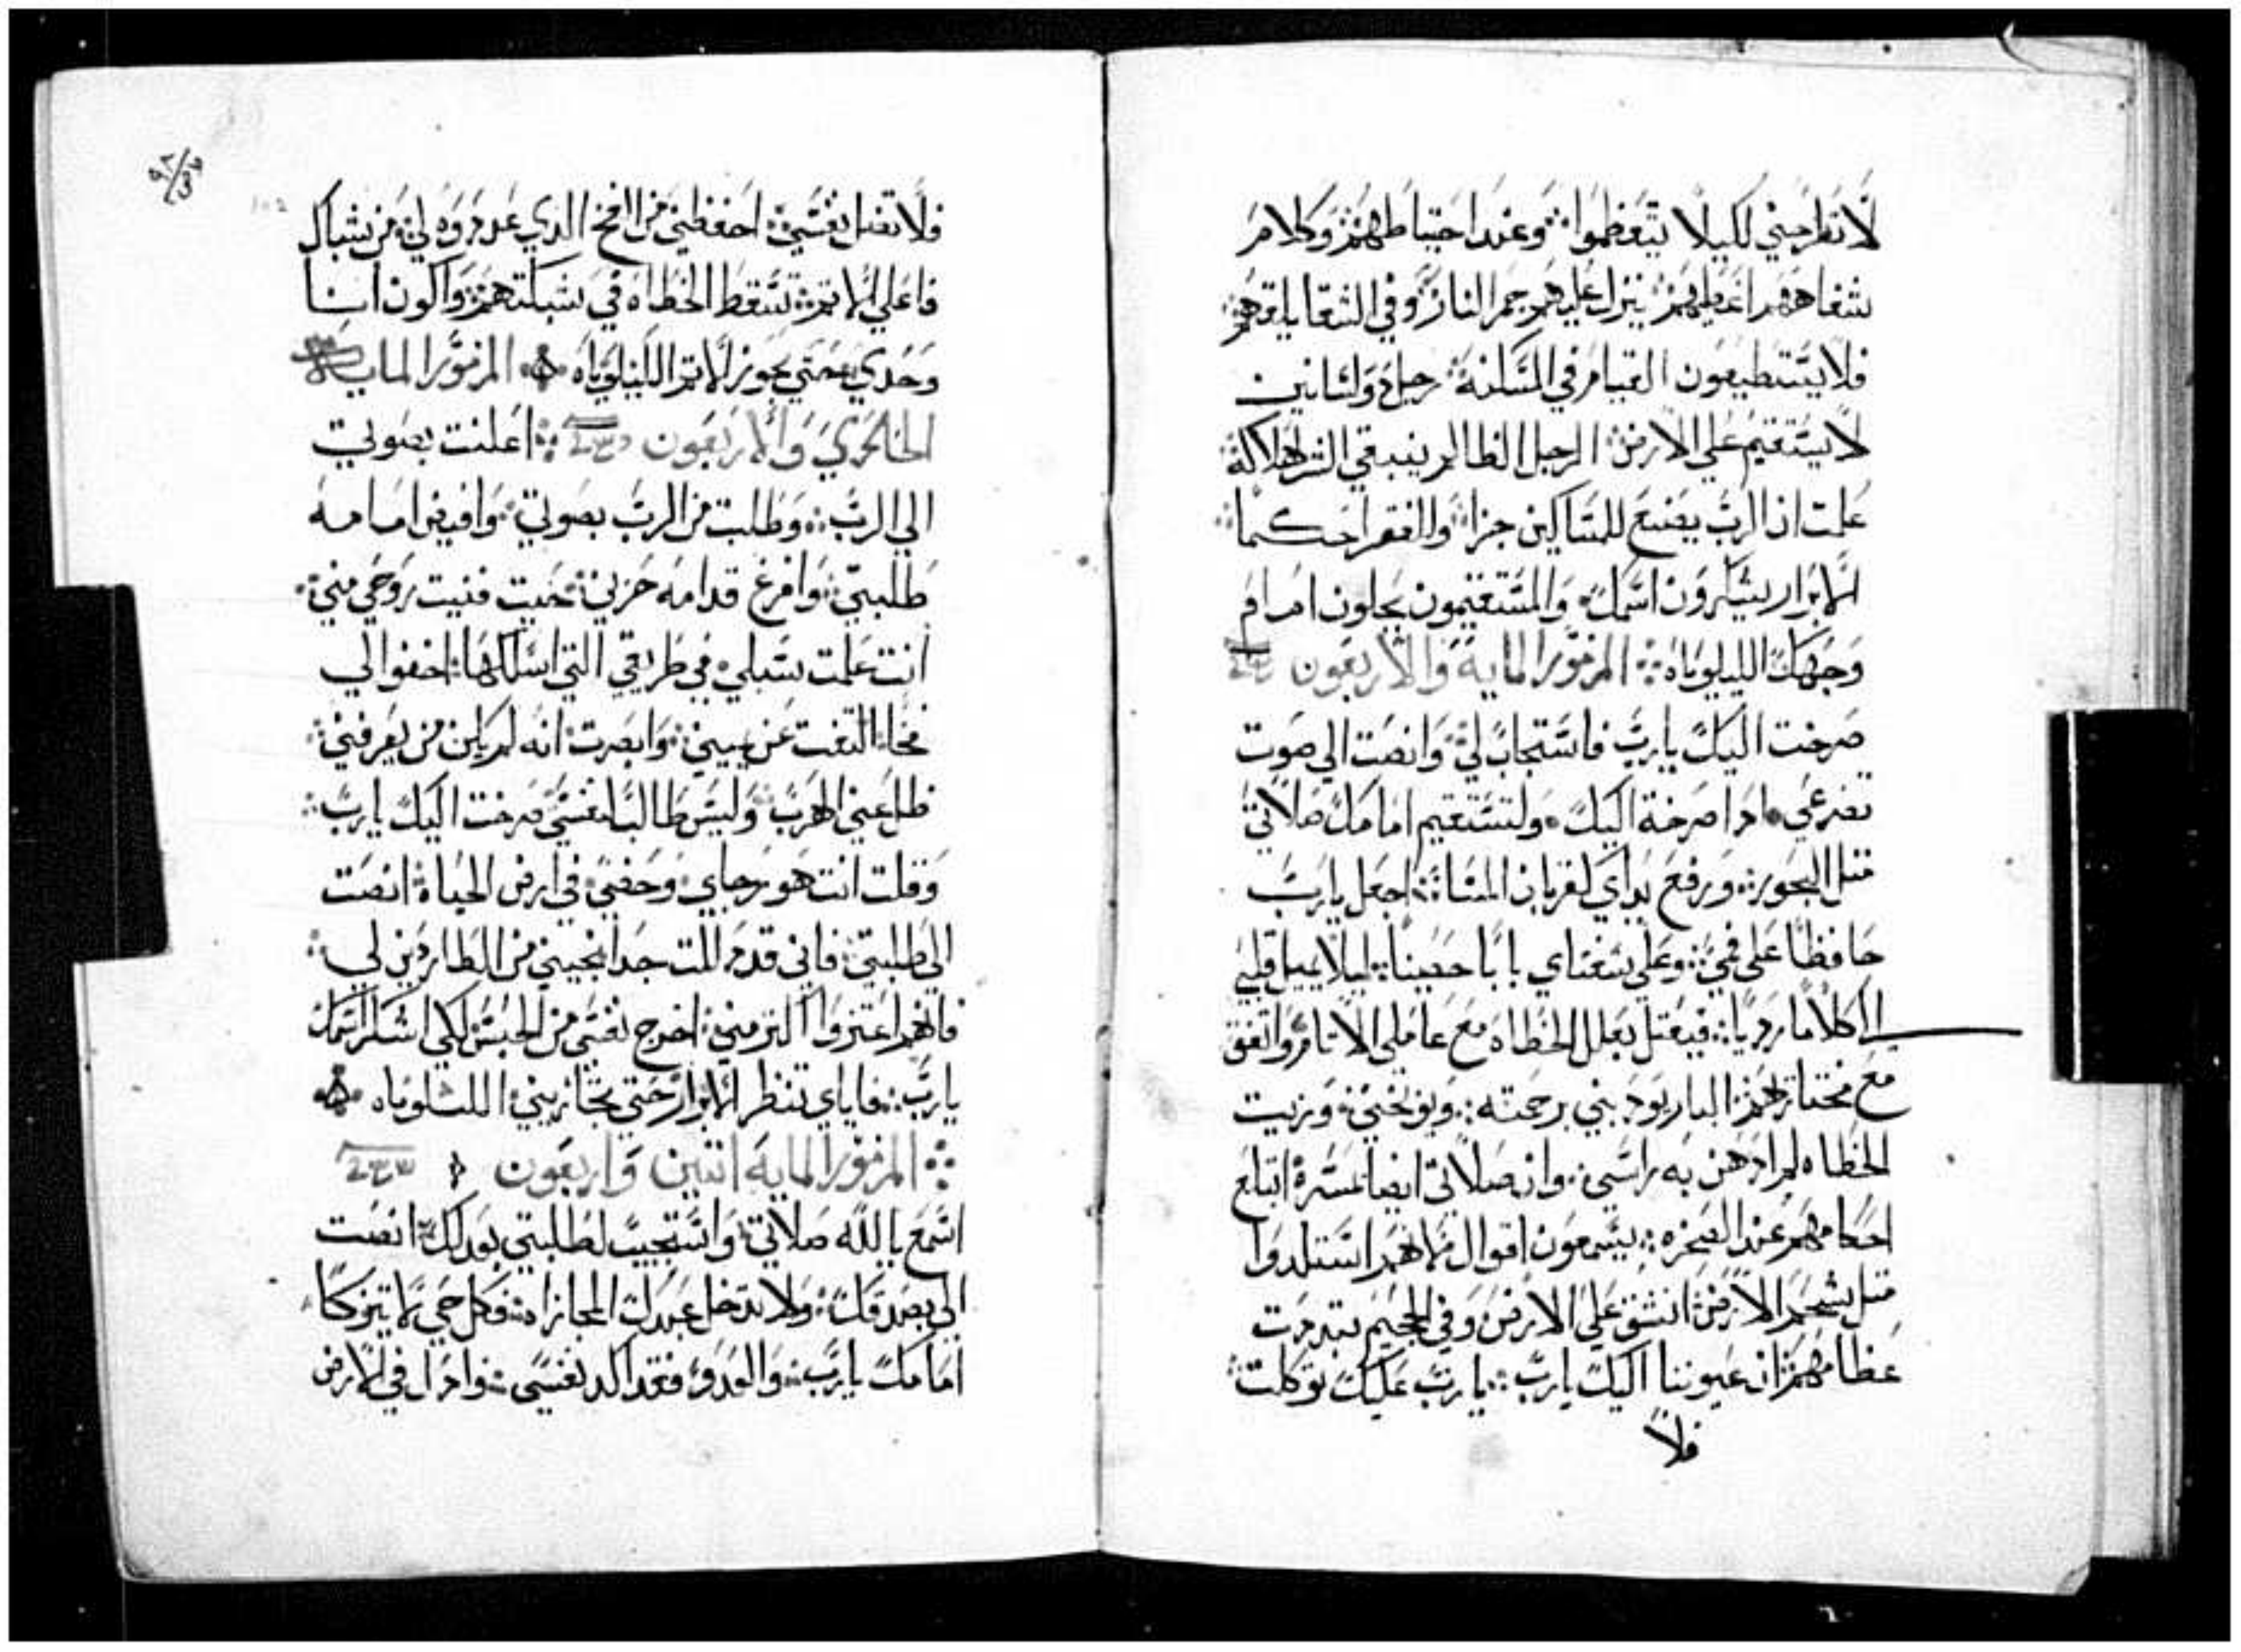 لا تطرحني لكيلا يتعظموا وعند احتياطهم وكلام
شفاههم اغطيهم ينزل عليهم جمر النار وفي الشقا يلقوهم
فلا يستطيعون القيام في المسكنة رجل ذو لسانين
لا يستقيم علي الارض الرجل الظالم ينبغي الشر لهلاكه
علمت ان الرب يصنع للمساكين جزا وللفقرا حكما
الابرار يشكرون اسمك والمستقيمون يحلون امام
وجهك الليلوياه المزمور الماية والاربعون
صرخت اليك يارب فاستجاب لي وانصت الي صوت
تضرعي ادا صرخة اليك ولتستقيم امامك صلاتي
متل البخور ورفع يداي كقربان المسا اجعل يارب
حافظا علي فمي وعلي شفتاي بابا حصينا ليلا يميل قلبي
الا كلاما رديا فيعتل بعلل الخطاه مع عاملي الاتام واتفق
مع مختاريهم البار يودبني برحمته ويوبخني وزيت
الخطاه لم ادهن به راسي وان صلاتي ايضا بمسرة اتباع
احكامهم عند الصخره يسمعون اقوالي لانهم استلدوا
متل شحم الارض انشق علي الارض وفي الجحيم تبددت
عظامهم ان عيوننا اليك يارب يارب عليك توكلت
فلا
فلا تقتل نفسي احفظني من الفخ الدي عدوه لي من شباك
فاعلي الاتم تسقط الخطاه في شبكتهم واكون انا
وحدي حتي يجوز الاتم الليلوياه المزمور المايه
الحادي والاربعون اعلنت بصوتي
الي الرب وطلبت من الرب بصوتي وافيض امامه
طلبتي وافرغ قدامه حزني حيت فنيت روحي مني
انت علمت سبلي في طريقي التي اسلكها اخفوا لي
فخا التفت عن يميني وابصرت انه لم يكن من يعرفني
ضل عني الهرب وليس طالبا نفسي صرخت اليك يارب
وقلت انت هو رجاي وحضي في ارض الحياة انصت
الي طلبتي فاني قد دللت جدا نجيني من الطاردين لي
فانهم اعتزوا اكتر مني اخرج نفسي من الحبس لكي اشكر اسمك
يارب فاياي تنظر الابرار حتي تجازيني الليلوياه
المزمور المايه اتنين واربعون
اسمع يالله صلاتي واستجيب لطلبتي بعدلك انصت
الي بصدقك ولا تدخل عبدك المجازاه فكل حي لا يتزكا
امامك يارب والعدو فقد اكد نفسي وادل في الارض